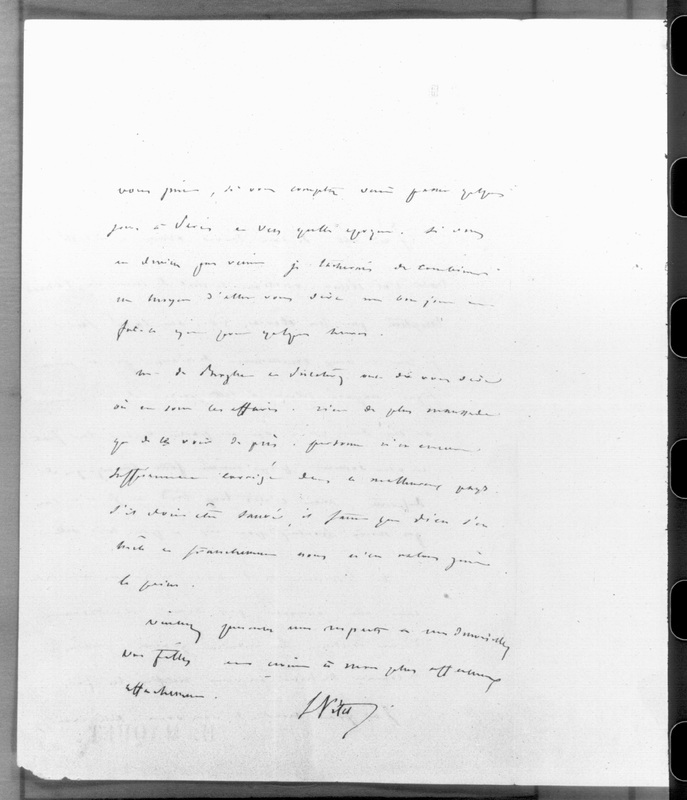 vous prie, si vous comptez venir passer quelques
jours à Paris et vers quelle époque. Si vous
ne deviez pas venir je tâcherais de combiner
un moyen d'aller vous dire un bon jour ne
fut-ce que pour quelques heures.
Mr de Broglie et Duchâtel ont dû vous dire
où en sont les affaires. rien de plus maussade
que de les voir de près. personne n'est encore
suffisamment corrigé dans ce malheureux pays.
S'il doit être sauvé, il faut que Dieu s'en
mêle et franchement nous n'en valons guère
la peine.
Veuillez présenter mes respects à mesdemoiselles
vos filles et croire à mon plus affectueux
attachement.
L Vitet